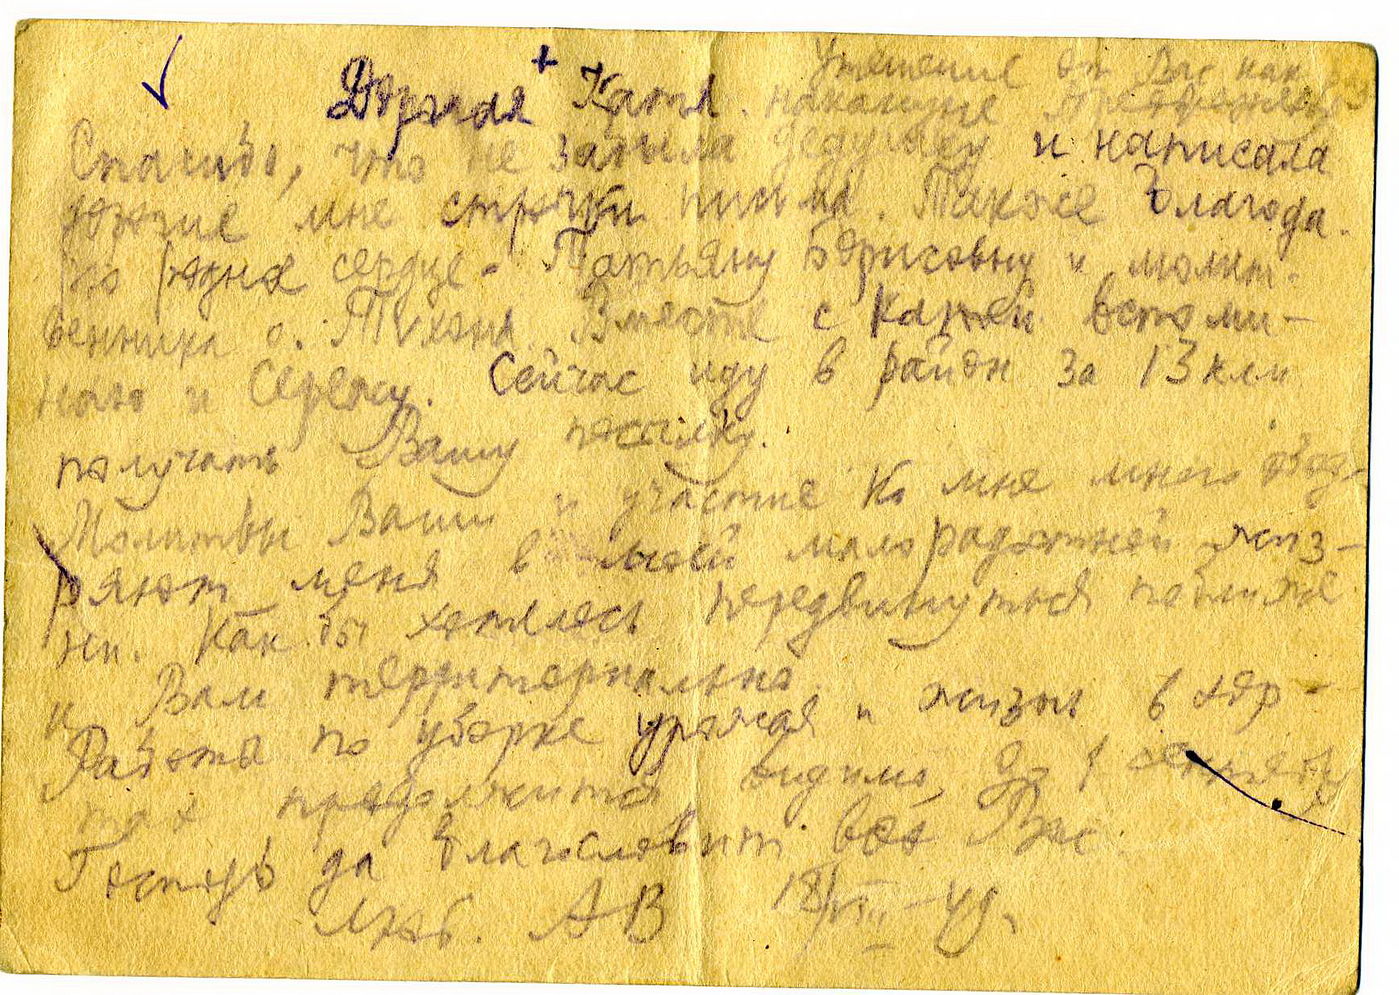 Утешение от Вас как
Дорогая + Катя. накануне
Спасибо, что не забыла дедушку и написала
дорогие мне строчки письма. Также благода-
рю родное сердце - Татьяну Борисовну и молит-
венника о. Тихона. Вместе с Катей вспоми-
наю и Сережу. Сейчас иду в район за 13 клм
получать Вашу посылку.
Молитвы Ваши и участие ко мне много обод-
ряют меня в моей малорадостной жиз-
ни. Как бы хотелось передвинуться поближе
к Вам территориально.
Работа по уборке урожая и жизнь в
продолжится, видимо, до 1 октября
Господь да благословит всех Вас.
Люб. АВ 18/VIII - 49.